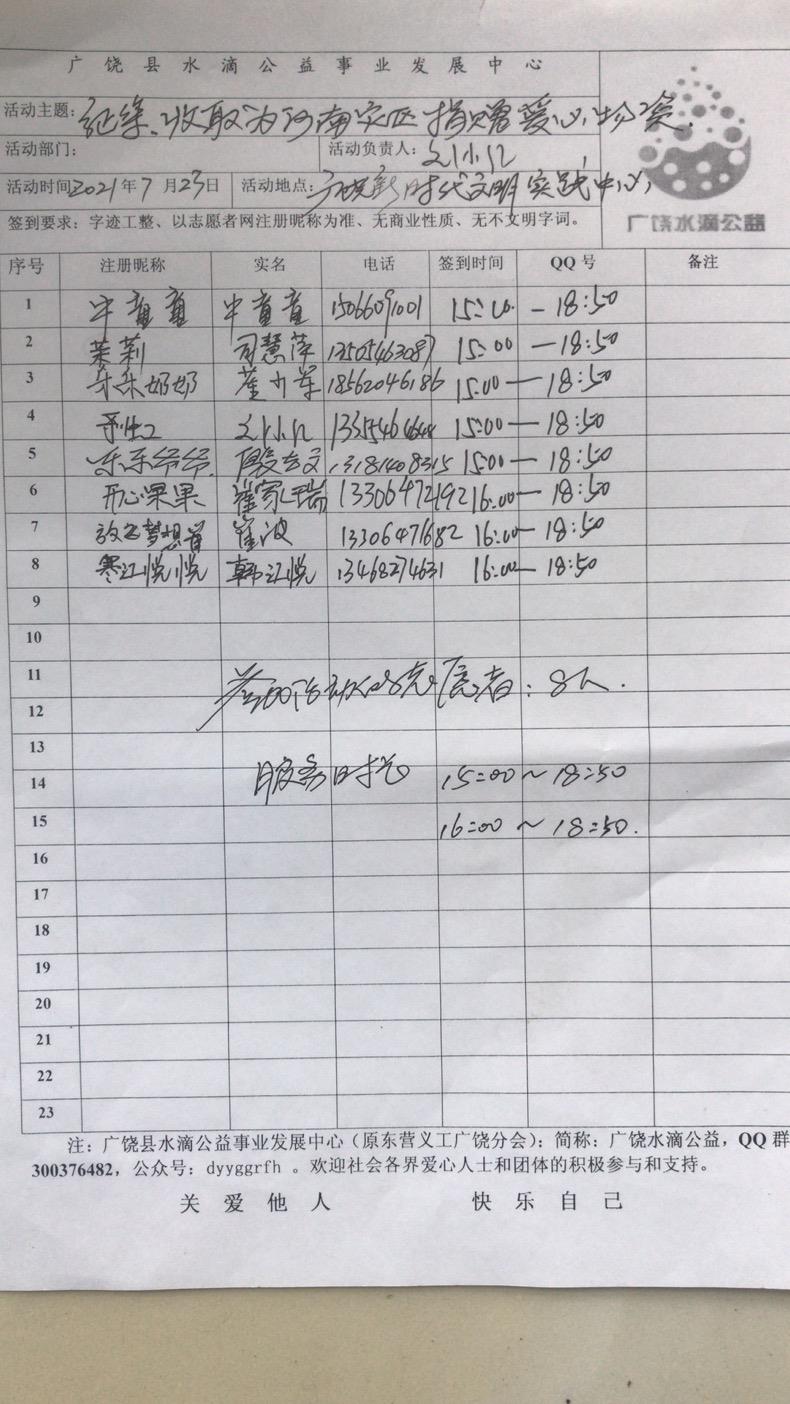 广饶县水滴公益事业发展中心
活动主题：征集、收取为河南灾区捐赠爱心物资.
活动部门： 活动负责人：刘小江
活动时间2021年7月23日 活动地点：广饶新时代文明实践中心
签到要求：字迹工整、以志愿者网注册昵称为准、无商业性质、无不文明字词。
广饶水滴公益
序号 注册昵称 实名 电话 签到时间 QQ 号 备注
1 15066091001 - 18:50
2 茉莉 司慧萍 13505463087 15:00 — 18:50
3 乐乐奶奶 18562046186 15:00 — 18:50
4 刘小江 15:00 — 18:50
5 乐乐爷爷 13181408315 15:00 — 18:50
6 开心果果 崔家瑞 13306472192 16:00 — 18:50
7 放飞梦想 崔波 13306471682 16:00 — 18:50
8 寒江悦悦 韩江悦 13468274631 16:00 — 18:50
9
10
11 参加活动的志愿者：8人.
12
13
14 服务时长 15:00 ~ 18:50
15 16:00 ~ 18:50.
16
17
18
19
20
21
22
23
注：广饶县水滴公益事业发展中心（原东营义工广饶分会）；简称：广饶水滴公益，QQ 群
300376482，公众号：dyyggrfh 。欢迎社会各界爱心人士和团体的积极参与和支持。
关爱他人 快乐自己